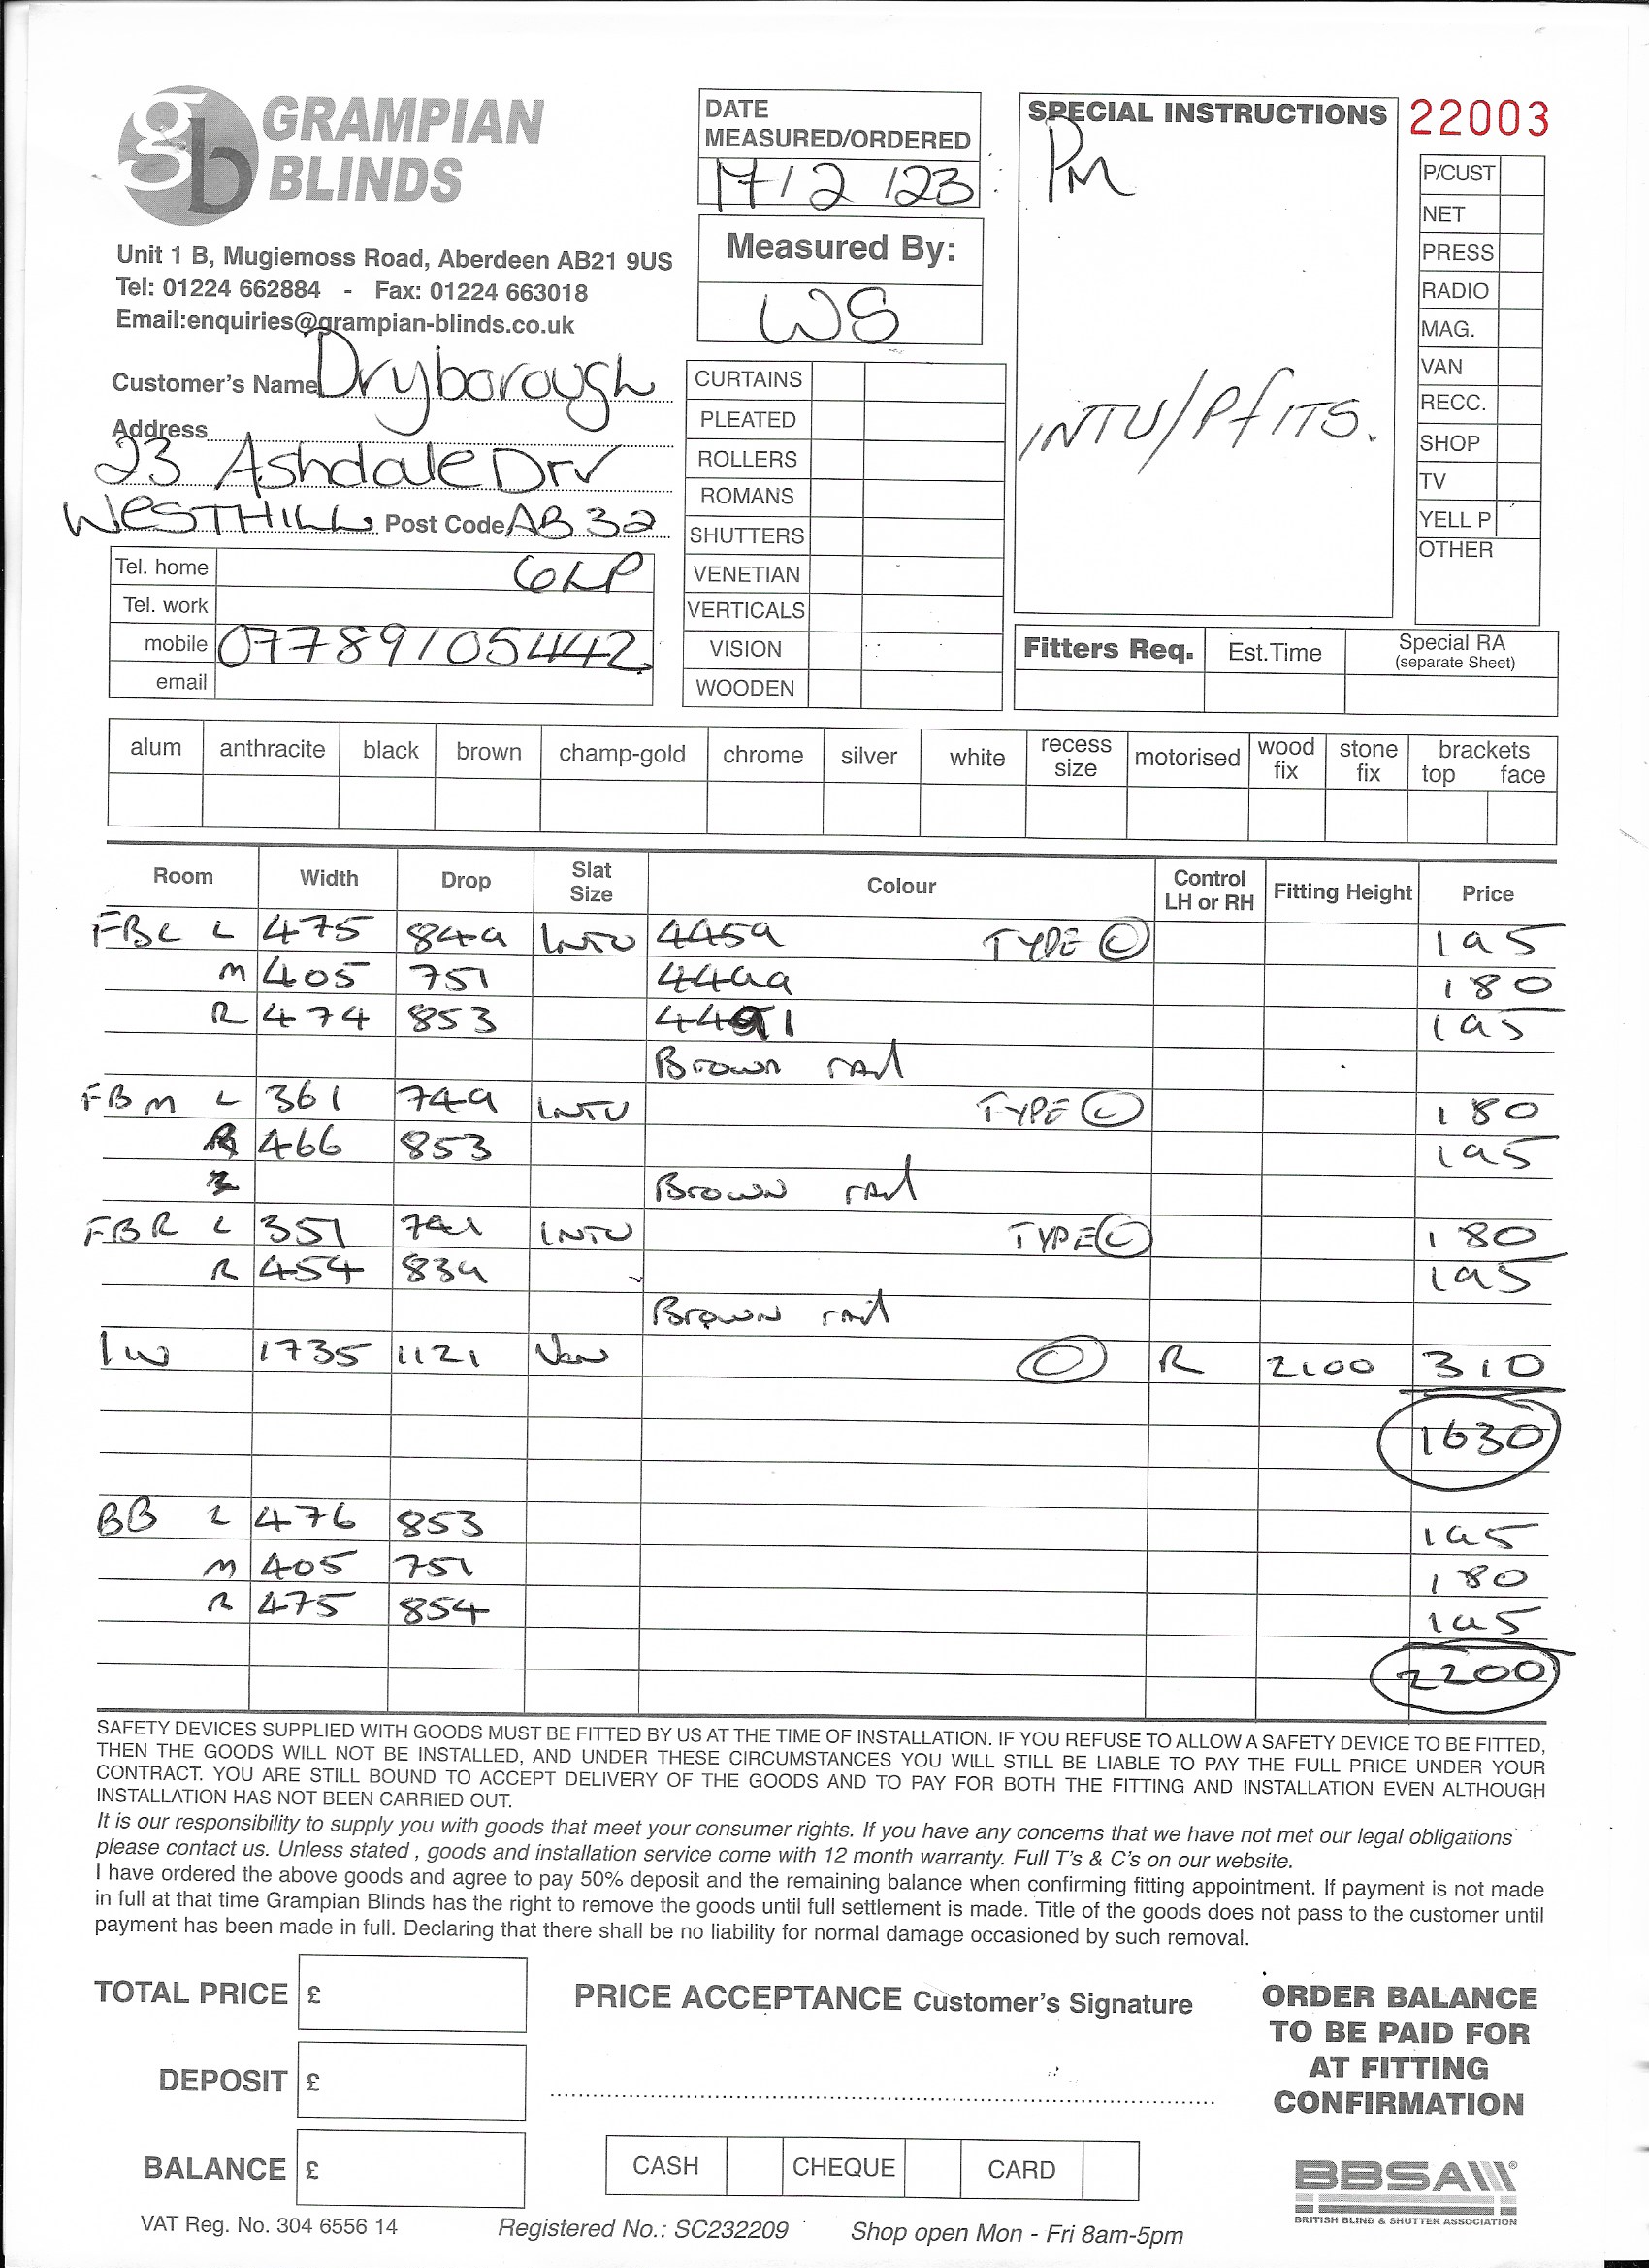 GRAMPIAN
BLINDS
Unit 1 B, Mugiemoss Road, Aberdeen AB21 9US
Tel: 01224 662884 - Fax: 01224 663018
Email:enquiries@grampian-blinds.co.uk
Customer's Name Dryborough
Address
23 Ashdale Drv
WESTHILL Post Code AB32
Tel. home 6LP
Tel. work
mobile 07789105442
email
DATE
MEASURED/ORDERED
/2/23
Measured By:
WS
CURTAINS
PLEATED
ROLLERS
ROMANS
SHUTTERS
VENETIAN
VERTICALS
VISION
WOODEN
SPECIAL INSTRUCTIONS
Pm
INTU/PfITS.
22003
P/CUST
NET
PRESS
RADIO
MAG.
VAN
RECC.
SHOP
TV
YELL P
OTHER
Fitters Req. Est.Time Special RA
(separate Sheet)
alum anthracite black brown champ-gold chrome silver white recess size motorised wood fix stone fix brackets top face
Room Width Drop Slat Size Colour Control LH or RH Fitting Height Price
FBL L 475 849 INTU 4459 TYPE C 195
M 405 751 4499 180
R 474 853 4491 195
Brown rail
FBM L 361 749 INTU TYPE C 180
R 466 853 195
Brown rail
FBR L 351 741 INTU TYPE C 180
R 454 839 195
Brown rail
1W 1735 1121 Ven C R 2100 310
1630
BB L 476 853 195
M 405 751 180
R 475 854 195
2200
SAFETY DEVICES SUPPLIED WITH GOODS MUST BE FITTED BY US AT THE TIME OF INSTALLATION. IF YOU REFUSE TO ALLOW A SAFETY DEVICE TO BE FITTED,
THEN THE GOODS WILL NOT BE INSTALLED, AND UNDER THESE CIRCUMSTANCES YOU WILL STILL BE LIABLE TO PAY THE FULL PRICE UNDER YOUR
CONTRACT. YOU ARE STILL BOUND TO ACCEPT DELIVERY OF THE GOODS AND TO PAY FOR BOTH THE FITTING AND INSTALLATION EVEN ALTHOUGH
INSTALLATION HAS NOT BEEN CARRIED OUT.
It is our responsibility to supply you with goods that meet your consumer rights. If you have any concerns that we have not met our legal obligations
please contact us. Unless stated , goods and installation service come with 12 month warranty. Full T's & C's on our website.
I have ordered the above goods and agree to pay 50% deposit and the remaining balance when confirming fitting appointment. If payment is not made
in full at that time Grampian Blinds has the right to remove the goods until full settlement is made. Title of the goods does not pass to the customer until
payment has been made in full. Declaring that there shall be no liability for normal damage occasioned by such removal.
TOTAL PRICE £
DEPOSIT £
BALANCE £
PRICE ACCEPTANCE Customer's Signature
CASH CHEQUE CARD
ORDER BALANCE
TO BE PAID FOR
AT FITTING
CONFIRMATION
BBSA
BRITISH BLIND & SHUTTER ASSOCIATION
VAT Reg. No. 304 6556 14 Registered No.: SC232209 Shop open Mon - Fri 8am-5pm